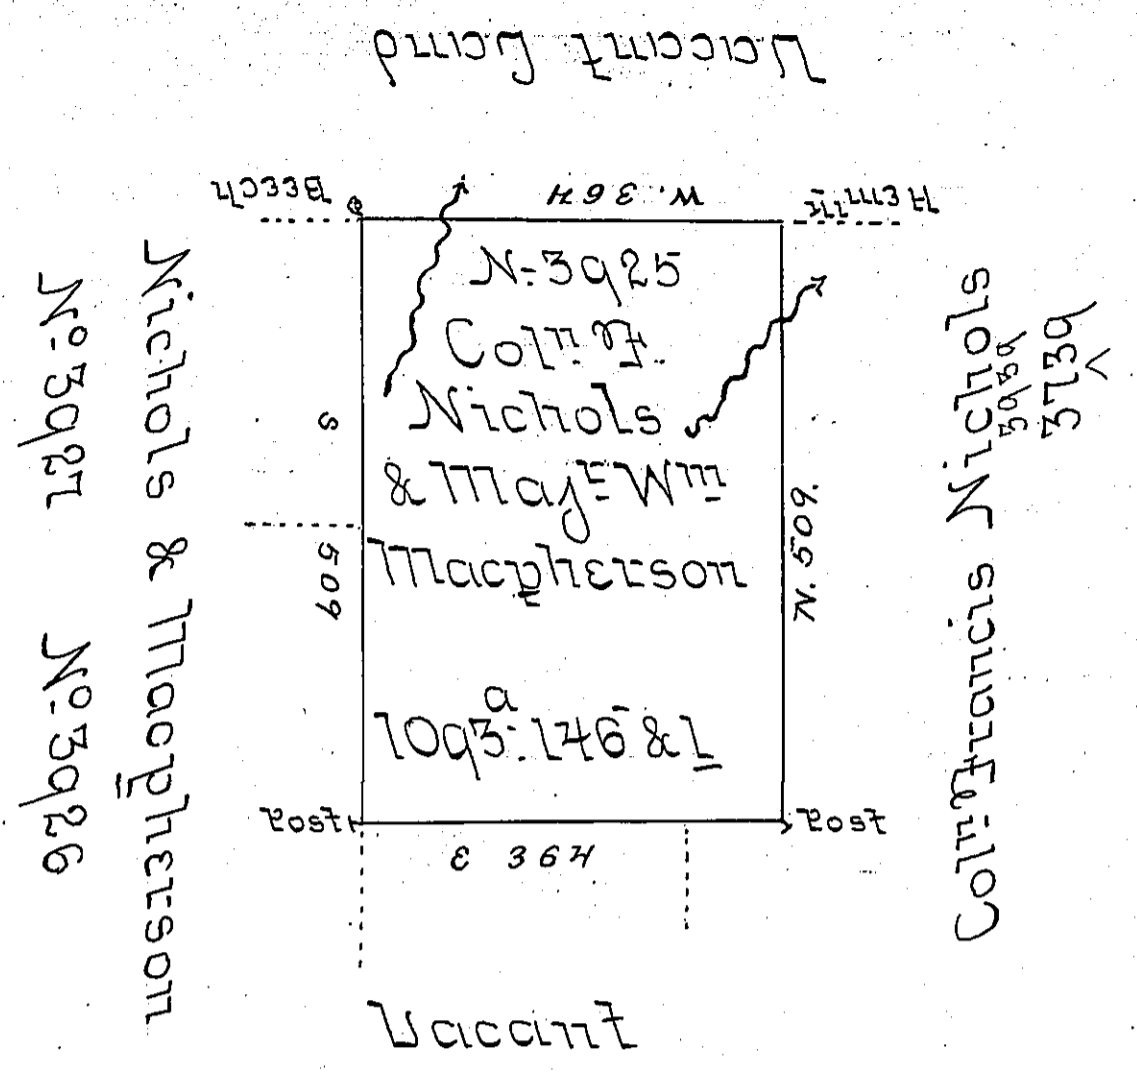 Vacant Land
Beech
W. 364
Hemlk
N- 3925
Coln. F.
Nichols
& Majr. Wm
Macpherson
1093a. 146 & l
S 509
N. 509.
Post
E 364
Post
Vacant
Nichols & Macpherson
No. 3927 No. 3926
Coln. Francis Nichols
3939
3739